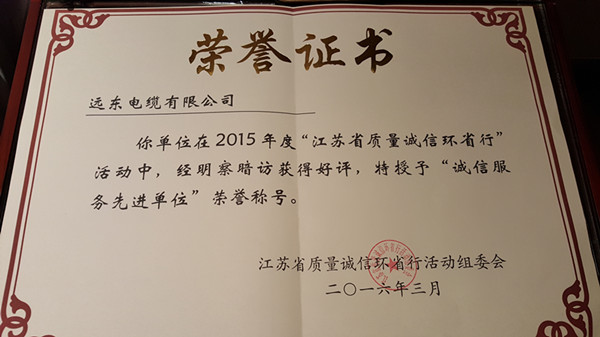 荣誉证书
远东电缆有限公司
你单位在2015年度“江苏省质量诚信环省行”
活动中，经明察暗访获得好评，特授予“诚信服
务先进单位”荣誉称号。
江苏省质量诚信环省行活动组委会
二〇一六年三月